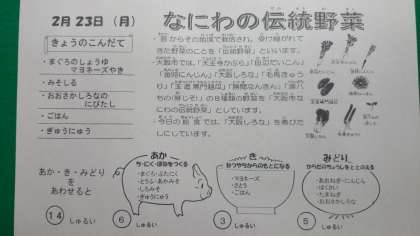 2月 23日（月）
なにわの伝統野菜
きょうのこんだて
・まぐろのしょうゆ
マヨネーズやき
・みそしる
・おおさかしろなの
にびたし
・ごはん
・ぎゅうにゅう
きた野菜のことを「伝統野菜」といいます。
大阪市では、「天王寺かぶら」「田辺だいこん」
「金時にんじん」「大阪しろな」「毛馬きゅう
り」「玉造黒門越瓜」「勝間なんきん」「源八
の8種類の野菜を「大阪市な
にわの伝統野菜」としています。
今日の給食では、「大阪しろな」を煮びた
しにしています。
あか・き・みどり
を
あわせると
14 しゅるい
あか
ち・にく・ほねをつくる
・まぐろ・ぶたにく
・とうふ・あかみそ
・しろみそ
・ぎゅうにゅう
6 しゅるい
き
ねつやちからのもとになる
・マヨネーズ
・さとう
・ごはん
3 しゅるい
みどり
からだのちょうしをととのえる
・あおねぎ・にんじん
・はくさい
・たまねぎ
・おおさかしろな
5 しゅるい